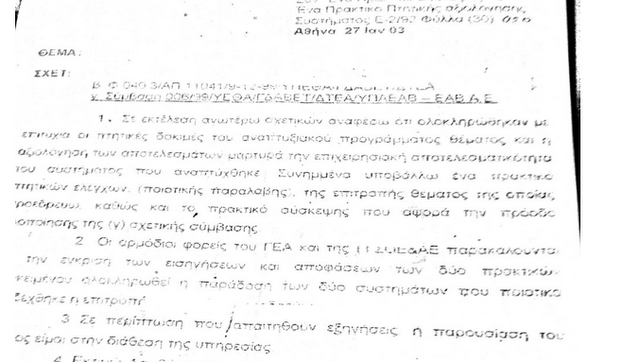 Ένα Πρακτικό Πτητικής αξιολόγησης,
Συστήματος Ε-2/92 Φύλλα (30)
Αθήνα 27 Ιαν 03
ΘΕΜΑ:
ΣΧΕΤ:
γ. Σύμβαση 006/99/ΥΕΘΑ/ΓΔΑΒΕΤ/ΔΤΕΑ/ΥΠ/ΕΑΒ – ΕΑΒ Α.Ε
1. Σε εκτέλεση ανωτέρω σχετικών αναφέρω ότι ολοκληρώθηκαν με
επιτυχία οι πτητικές δοκιμές του αναπτυξιακού προγράμματος θέματος και η
αξιολόγηση των αποτελεσμάτων μαρτυρά την επιχειρησιακή αποτελεσματικότητα
του συστήματος που αναπτύχθηκε. Συνημμένα υποβάλλω ένα πρακτικό
πτητικών ελέγχων, (ποιοτικής παραλαβής), της επιτροπής θέματος της οποίας
προεδρεύω, καθώς και το πρακτικό σύσκεψης που αφορά την πρόοδο
οποίησης της (γ) σχετικής σύμβασης
2. Οι αρμόδιοι φορείς του ΓΕΑ και της παρακαλούνται
την έγκριση των εισηγήσεων και αποφάσεων των δύο πρακτικών
κειμένου ολοκληρωθεί η παράδοση των δύο συστημάτων που ποιοτικά
δέχθηκε η επιτροπή
3 Σε περίπτωση που απαιτηθούν εξηγήσεις ή παρουσίαση του
ος είμαι στην διάθεση της υπηρεσίας